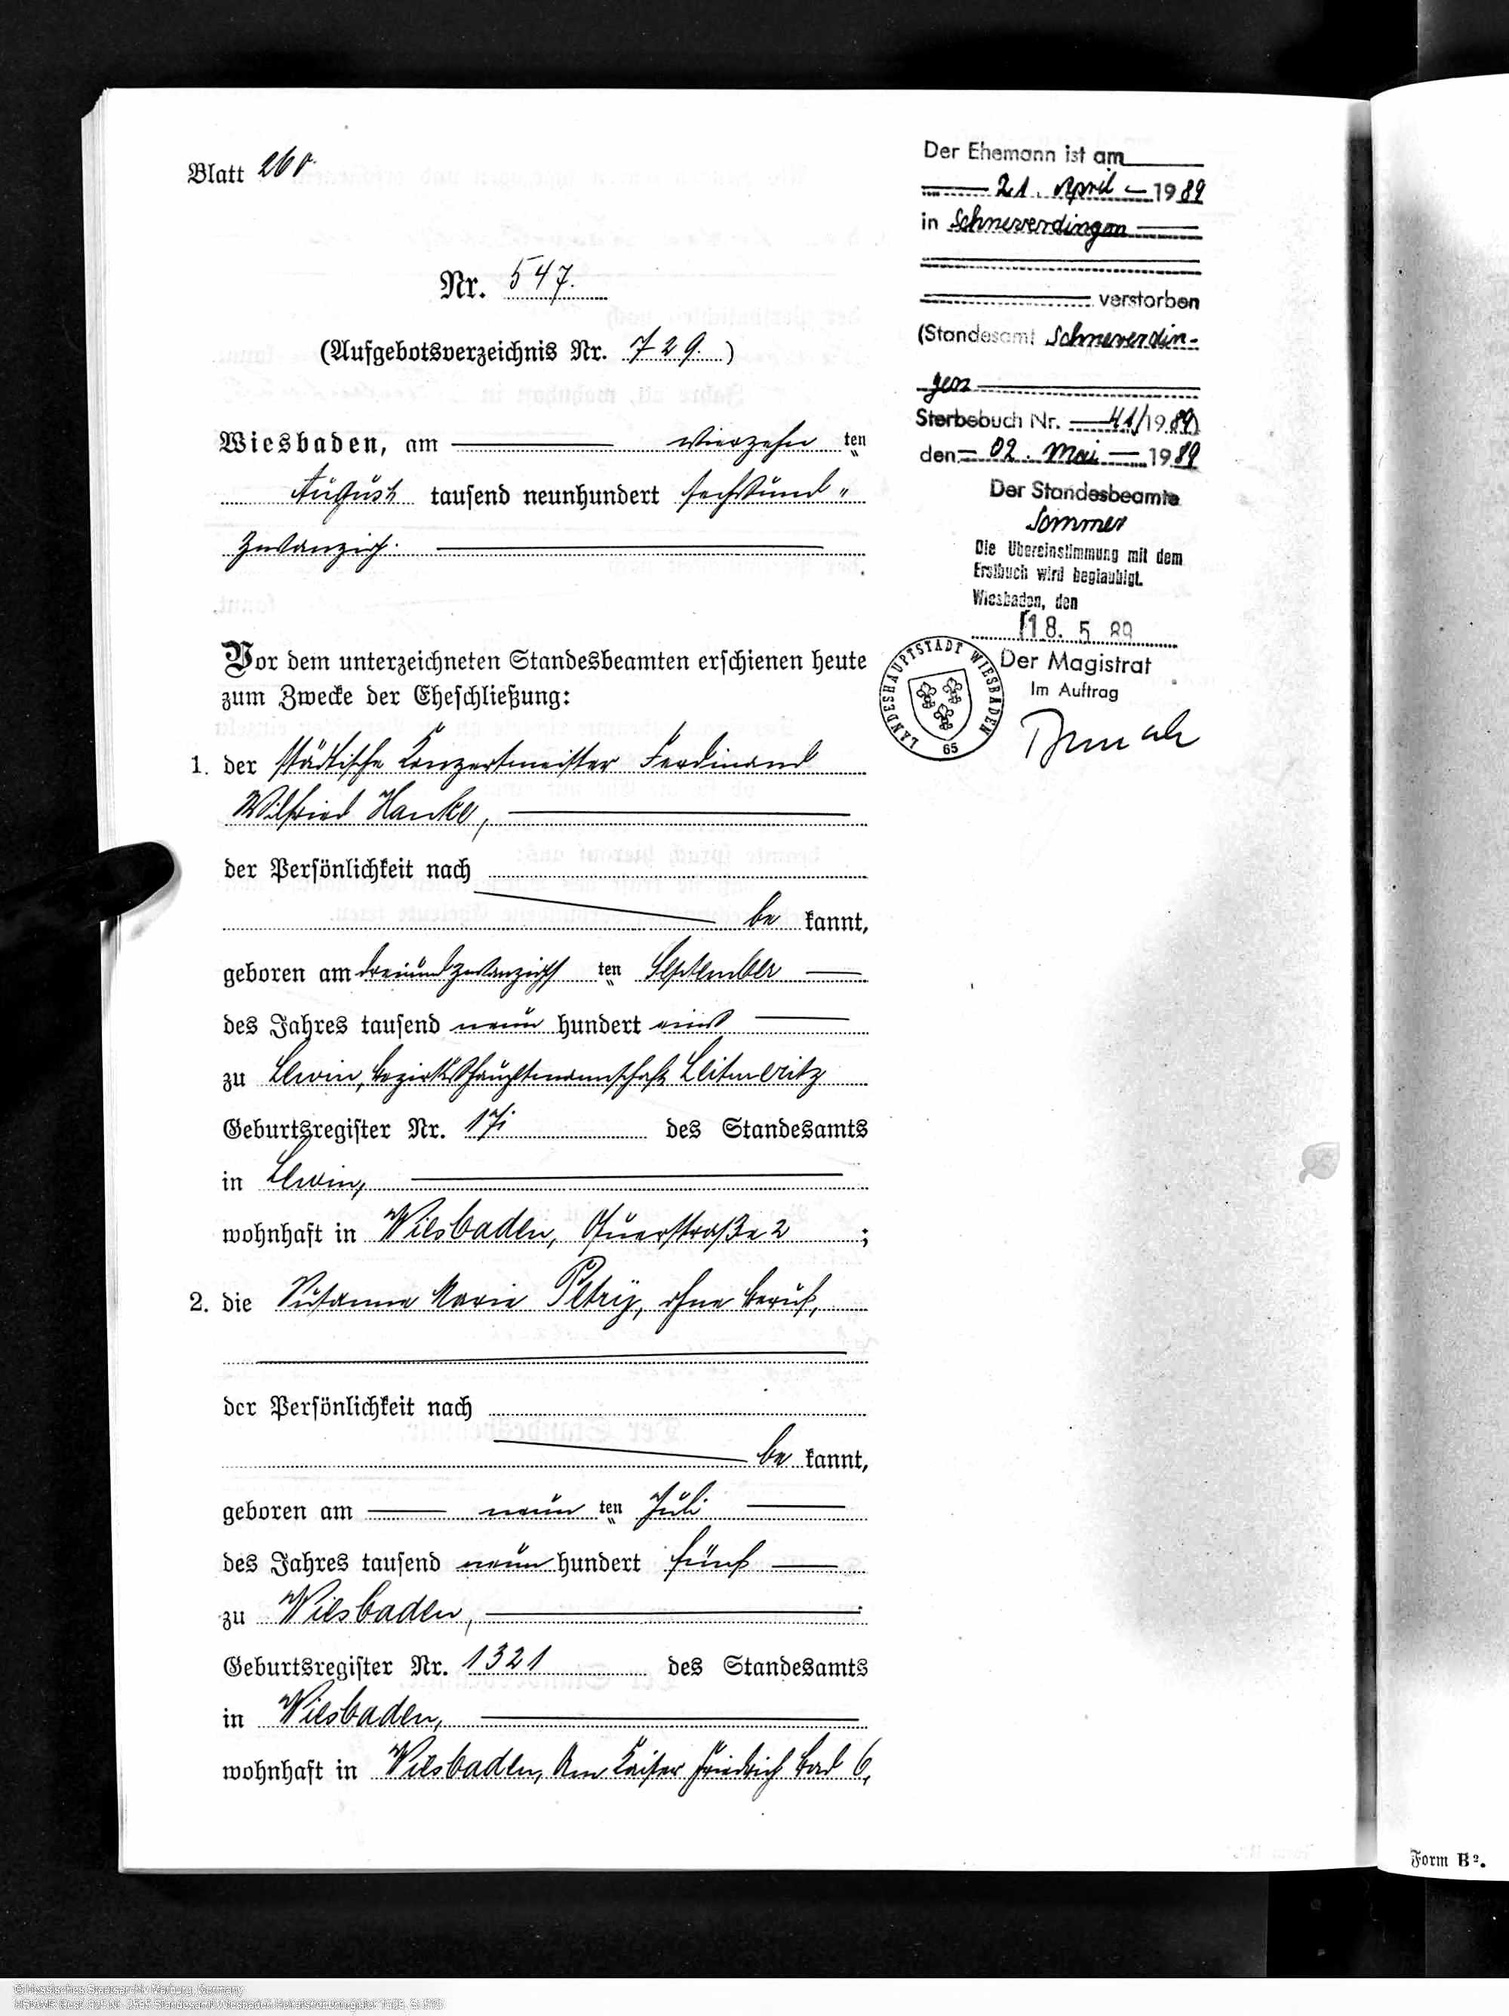 Blatt 260.
Nr. 547.
(Aufgebotsverzeichnis Nr. 729.)
Wiesbaden, am vierzehn ten
August tausend neunhundert sechsund-
zwanzig.
Vor dem unterzeichneten Standesbeamten erschienen heute
zum Zwecke der Eheschließung:
1. der städtische Konzertmeister Ferdinand
Wilfried Hanke,
der Persönlichkeit nach
be kannt,
geboren am dreiundzwanzigs ten September
des Jahres tausend neun hundert eins
zu Lewin, Bezirkshauptmannschaft Leitmeritz
Geburtsregister Nr. 17 des Standesamts
in Lewin,
wohnhaft in Wiesbaden, Querstraße 2 ;
2. die Susanne Marie Petry, ohne Beruf,
der Persönlichkeit nach
be kannt,
geboren am neun ten Juli
des Jahres tausend neun hundert fünf
zu Wiesbaden,
Geburtsregister Nr. 1321 des Standesamts
in Wiesbaden,
wohnhaft in Wiesbaden, Am Kaiser Friedrich Bad 6,
Der Ehemann ist am
21. April 1989
in Schneverdingen
verstorben
(Standesamt Schneverdin-
gen
Sterbebuch Nr. 41/1989)
den 02. Mai 1989
Der Standesbeamte
Sommer
Die Übereinstimmung mit dem
Erstbuch wird beglaubigt.
Wiesbaden, den
18. 5. 89
Der Magistrat
Im Auftrag
LANDESHAUPTSTADT WIESBADEN
65
Form B².